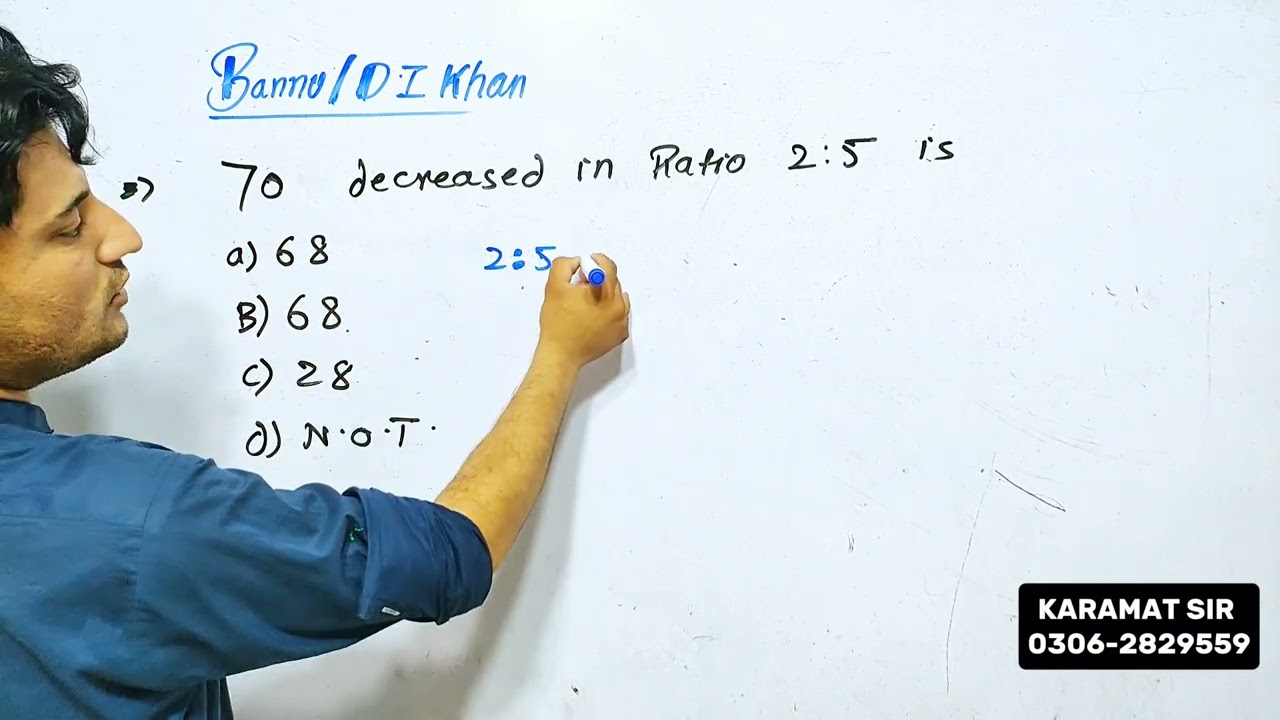 Bannu/D I Khan
=> 70 decreased in Ratio 2:5 is
a) 68
B) 68.
c) 28
d) N.O.T.
2:5
KARAMAT SIR
0306-2829559